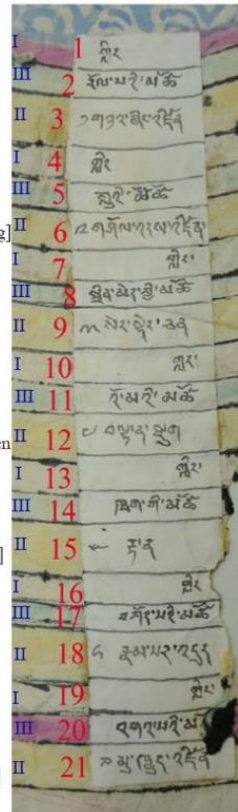 I 1 གླིང
III 2 རོལ་པའི་མཚོ
II 3 ༡ གཉའ་ཤིང་འཛིན
I 4 གླིང
III 5 མཚོ
g] II 6 ༢ འཛིན
I 7 གླིང་
III 8 མཚོ
II 9 ༣ སེང་ལྡེང་ཅན
I 10 གླིང་
III 11 འོ་མའི་མཚོ
en II 12 ༤ བལྟ་ན་སྡུག
I 13 གླིང་
III 14 ཁྲག་གི་མཚོ
] II 15 ༥ རྟ་རྣ
I 16 གླིང
III 17 མཚོ
II 18 ༦ རྣམ་པར་འདུད
I 19 གླིང་
III 20
II 21 ༧ མུ་ཁྱུད་འཛིན